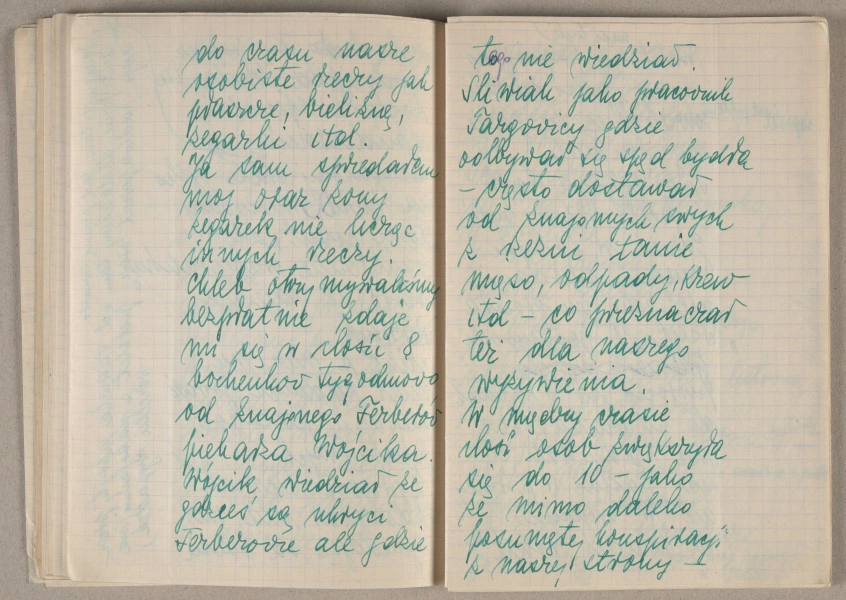 do czasu nasze
osobiste rzeczy jak
płaszcze, bieliznę,
zegarki itd.
Ja sam sprzedałem
moj oraz żony
zegarek nie licząc
innych rzeczy.
Chleb otrzymywaliśmy
bezpłatnie zdaje
mi się w ilości 8
bochenkow tygodniowo
od znajomego Ferberów
piekarza Wójcika.
Wójcik wiedział że
gdzieś są ukryci
Ferberowie ale gdzie
tego nie wiedział.
Śliwiak jako pracownik
Targowicy gdzie
odbywał się spęd bydła
– często dostawał
od znajomych swych
z rzezni tanie
mięso, odpady, krew
itd – co przeznaczał
też dla naszego
wyżywienia.
W między czasie
ilość osób zwiększyła
się do 10 – jako
że mimo daleko
posuniętej konspiracji
z naszej strony –